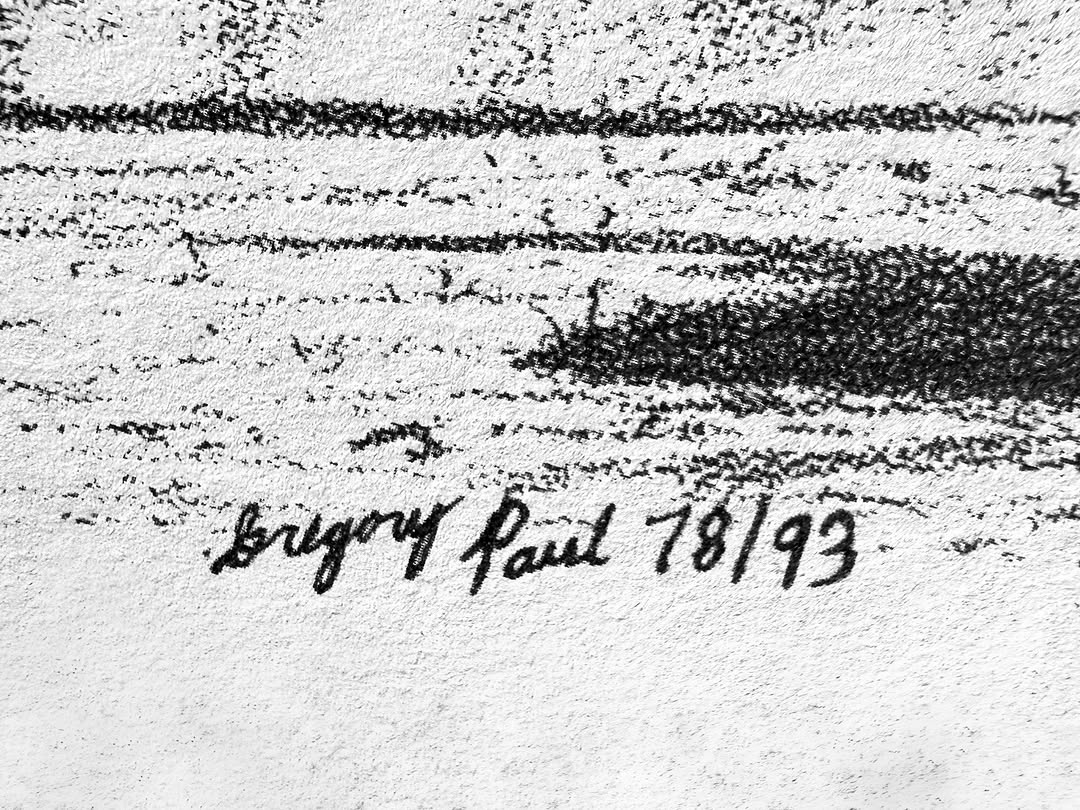 Gregory Paul 78/93